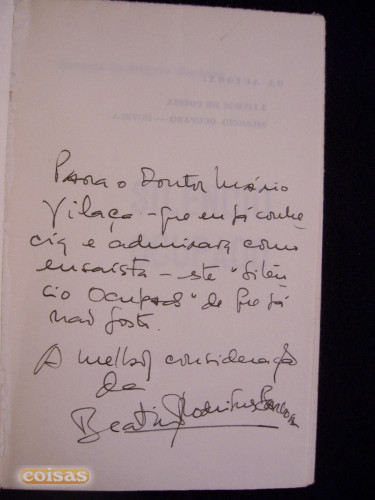 Para o Doutor Mário
Vilaça - que eu já conhe
cia e admirava como
ensaísta - este "Silên
cio Ocupado" de que já
não gosto.
A melhor consideração
da
Beatriz Rodrigues Barbosa
coisas